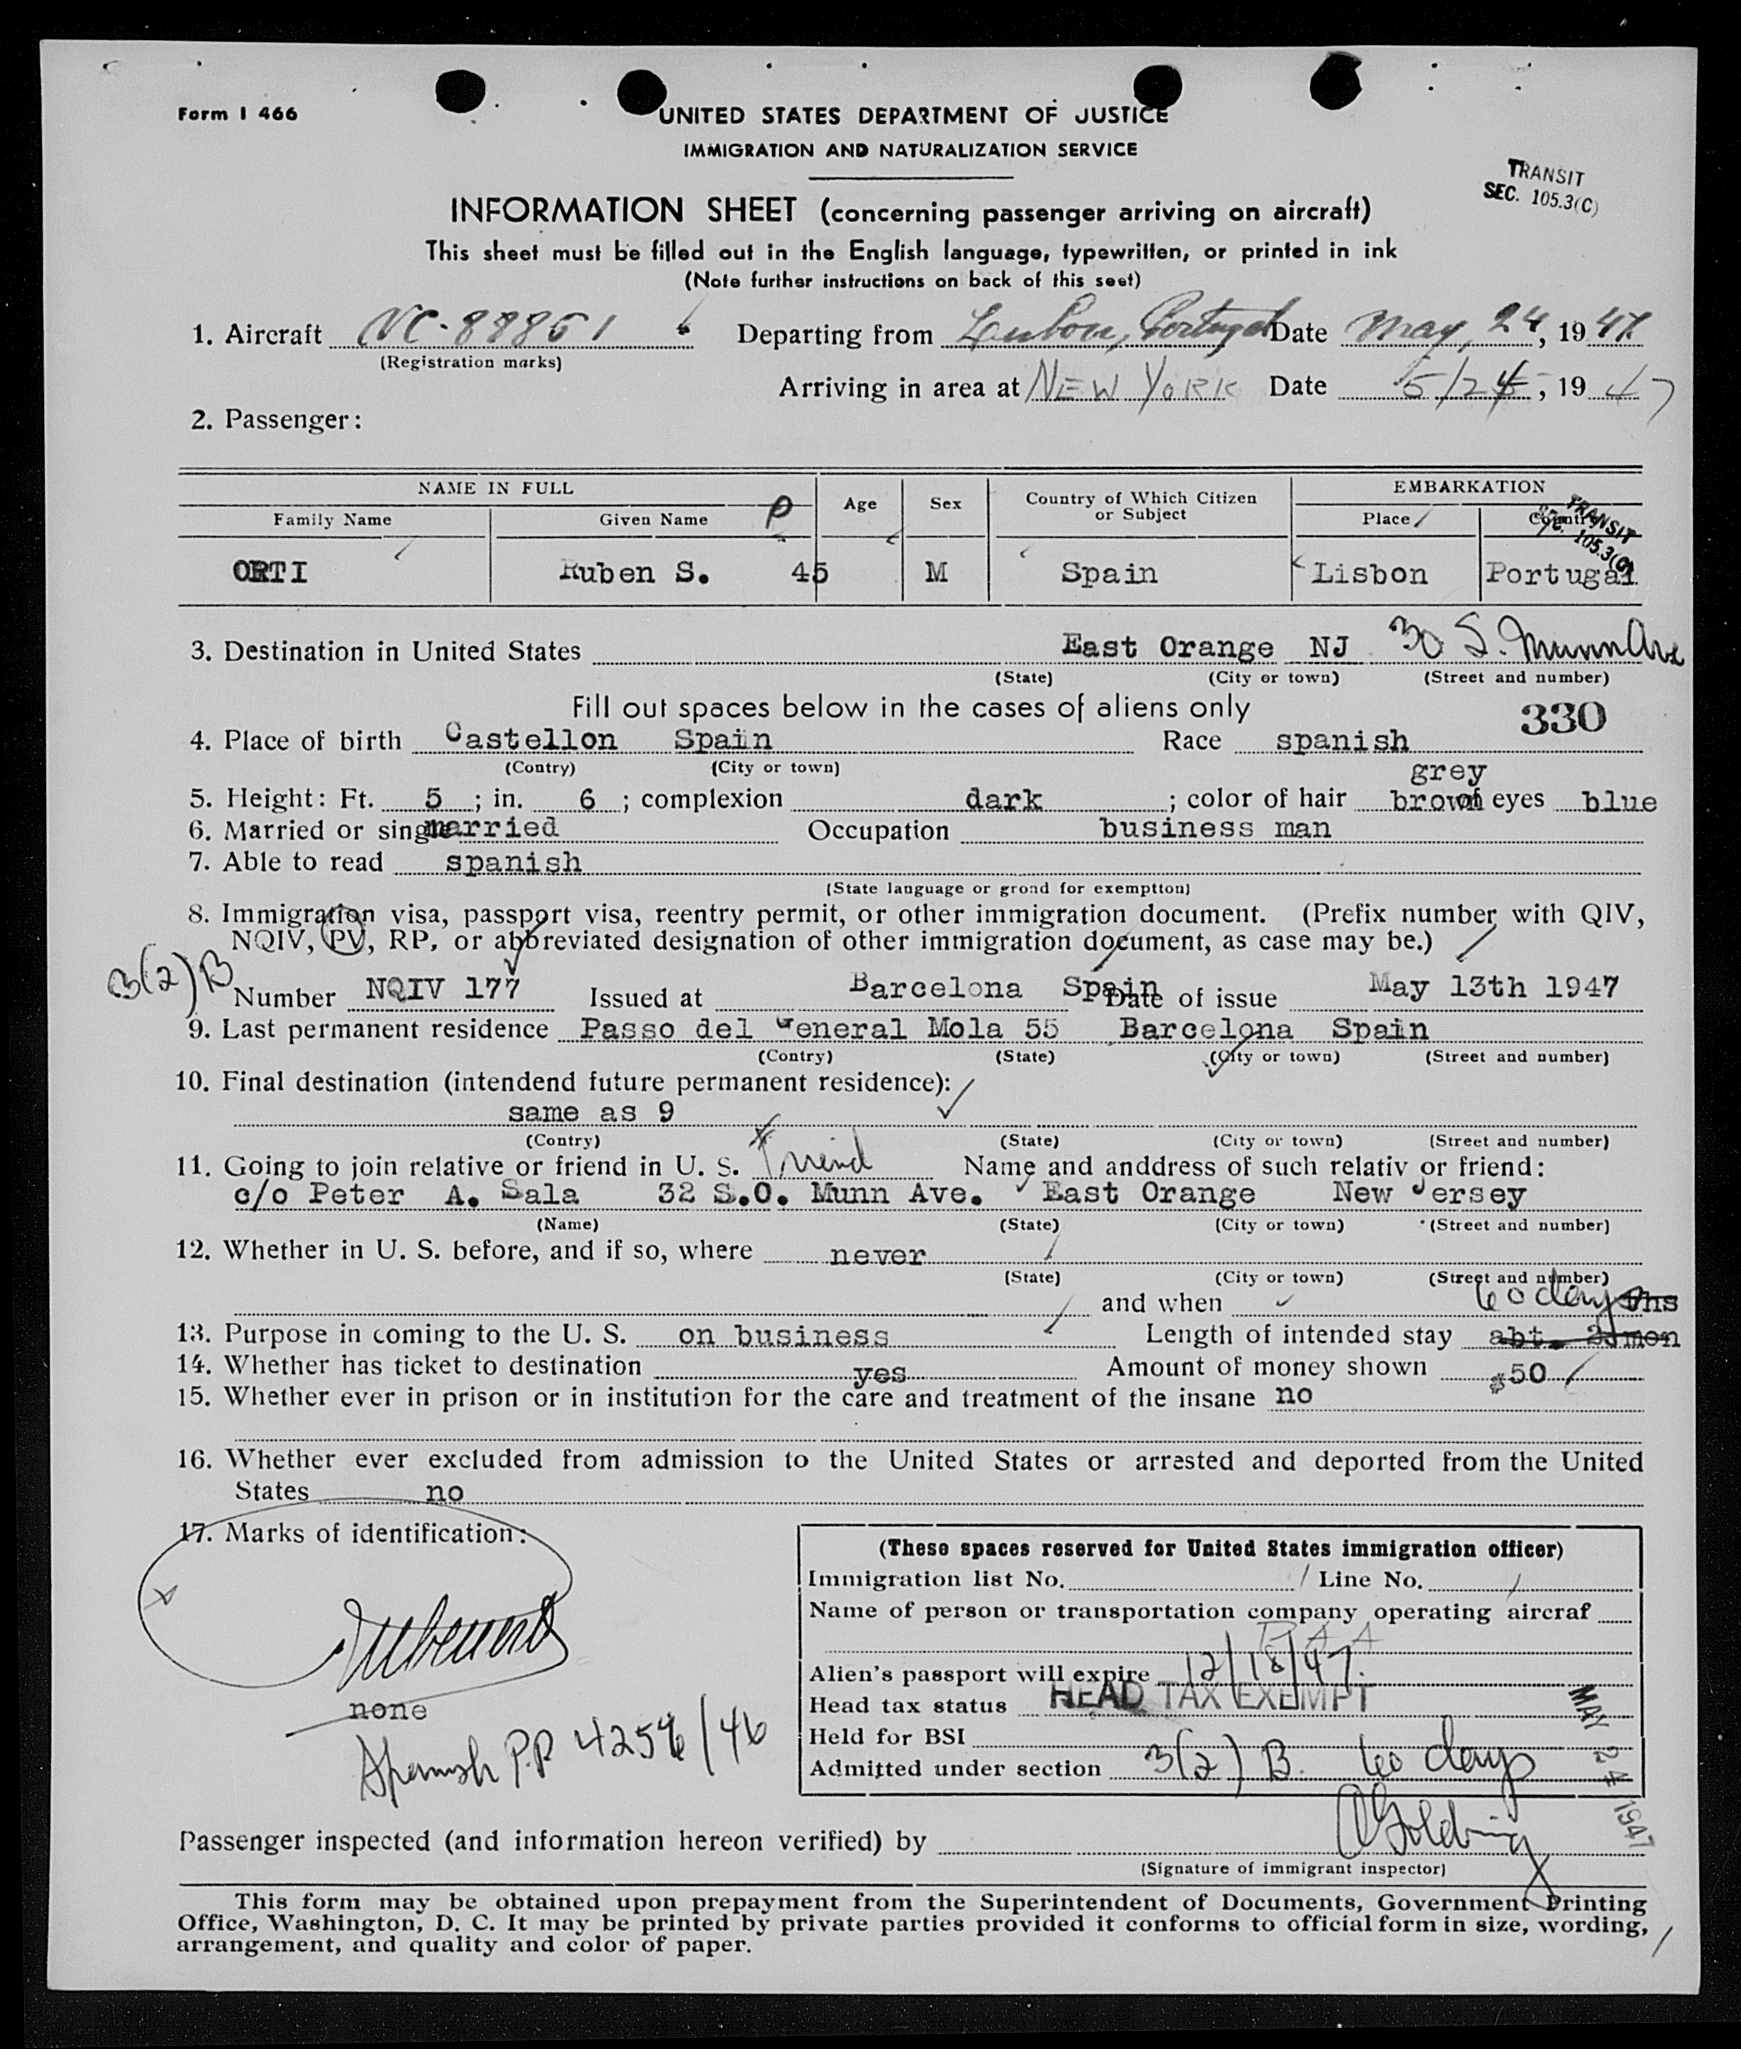 Form I 466
UNITED STATES DEPARTMENT OF JUSTICE
IMMIGRATION AND NATURALIZATION SERVICE
TRANSIT
SEC. 105.3(C)
INFORMATION SHEET (concerning passenger arriving on aircraft)
This sheet must be filled out in the English language, typewritten, or printed in ink
(Note further instructions on back of this seet)
1. Aircraft NC-88861 Departing from Lisbon, Portugal Date May, 24, 1947
(Registration marks)
Arriving in area at NEW YORK Date 5/24, 1947
2. Passenger:
NAME IN FULL Age Sex Country of Which Citizen or Subject EMBARKATION
Family Name Given Name P Place Country
TRANSIT
SEC. 105.3(C)
ORTI Ruben S. 45 M Spain Lisbon Portugal
3. Destination in United States East Orange NJ 30 S. Munn Ave
(State) (City or town) (Street and number)
Fill out spaces below in the cases of aliens only 330
4. Place of birth Castellon Spain Race spanish
(Contry) (City or town)
grey
5. Height: Ft. 5 ; in. 6 ; complexion dark ; color of hair brown of eyes blue
6. Married or single married Occupation business man
7. Able to read spanish
(State language or grond for exemptton)
8. Immigration visa, passport visa, reentry permit, or other immigration document. (Prefix number with QIV,
NQIV, PV, RP, or abbreviated designation of other immigration document, as case may be.)
3(2)B
Number NQIV 177 Issued at Barcelona Spain Date of issue May 13th 1947
9. Last permanent residence Passo del General Mola 55 Barcelona Spain
(Contry) (State) (City or town) (Street and number)
10. Final destination (intendend future permanent residence):
same as 9
(Contry) (State) (City or town) (Street and number)
11. Going to join relative or friend in U. S. friend Name and anddress of such relativ or friend:
c/o Peter A. Sala 32 S.O. Munn Ave. East Orange New Jersey
(Name) (State) (City or town) (Street and number)
12. Whether in U. S. before, and if so, where never
(State) (City or town) (Street and number)
and when 60 days ths
13. Purpose in coming to the U. S. on business Length of intended stay abt. 2 mon
14. Whether has ticket to destination yes Amount of money shown $50
15. Whether ever in prison or in institution for the care and treatment of the insane no
16. Whether ever excluded from admission to the United States or arrested and deported from the United
States no
17. Marks of identification:
none
Spanish P.P 4256/46
(These spaces reserved for United States immigration officer)
Immigration list No. Line No.
Name of person or transportation company operating aircraf
PAA
Alien's passport will expire 12/18/47.
Head tax status HEAD TAX EXEMPT
Held for BSI
Admitted under section 3(2) B. 60 days
MAY 24 1947
Passenger inspected (and information hereon verified) by Golding
(Signature of immigrant inspector)
This form may be obtained upon prepayment from the Superintendent of Documents, Government Printing
Office, Washington, D. C. It may be printed by private parties provided it conforms to official form in size, wording,
arrangement, and quality and color of paper.